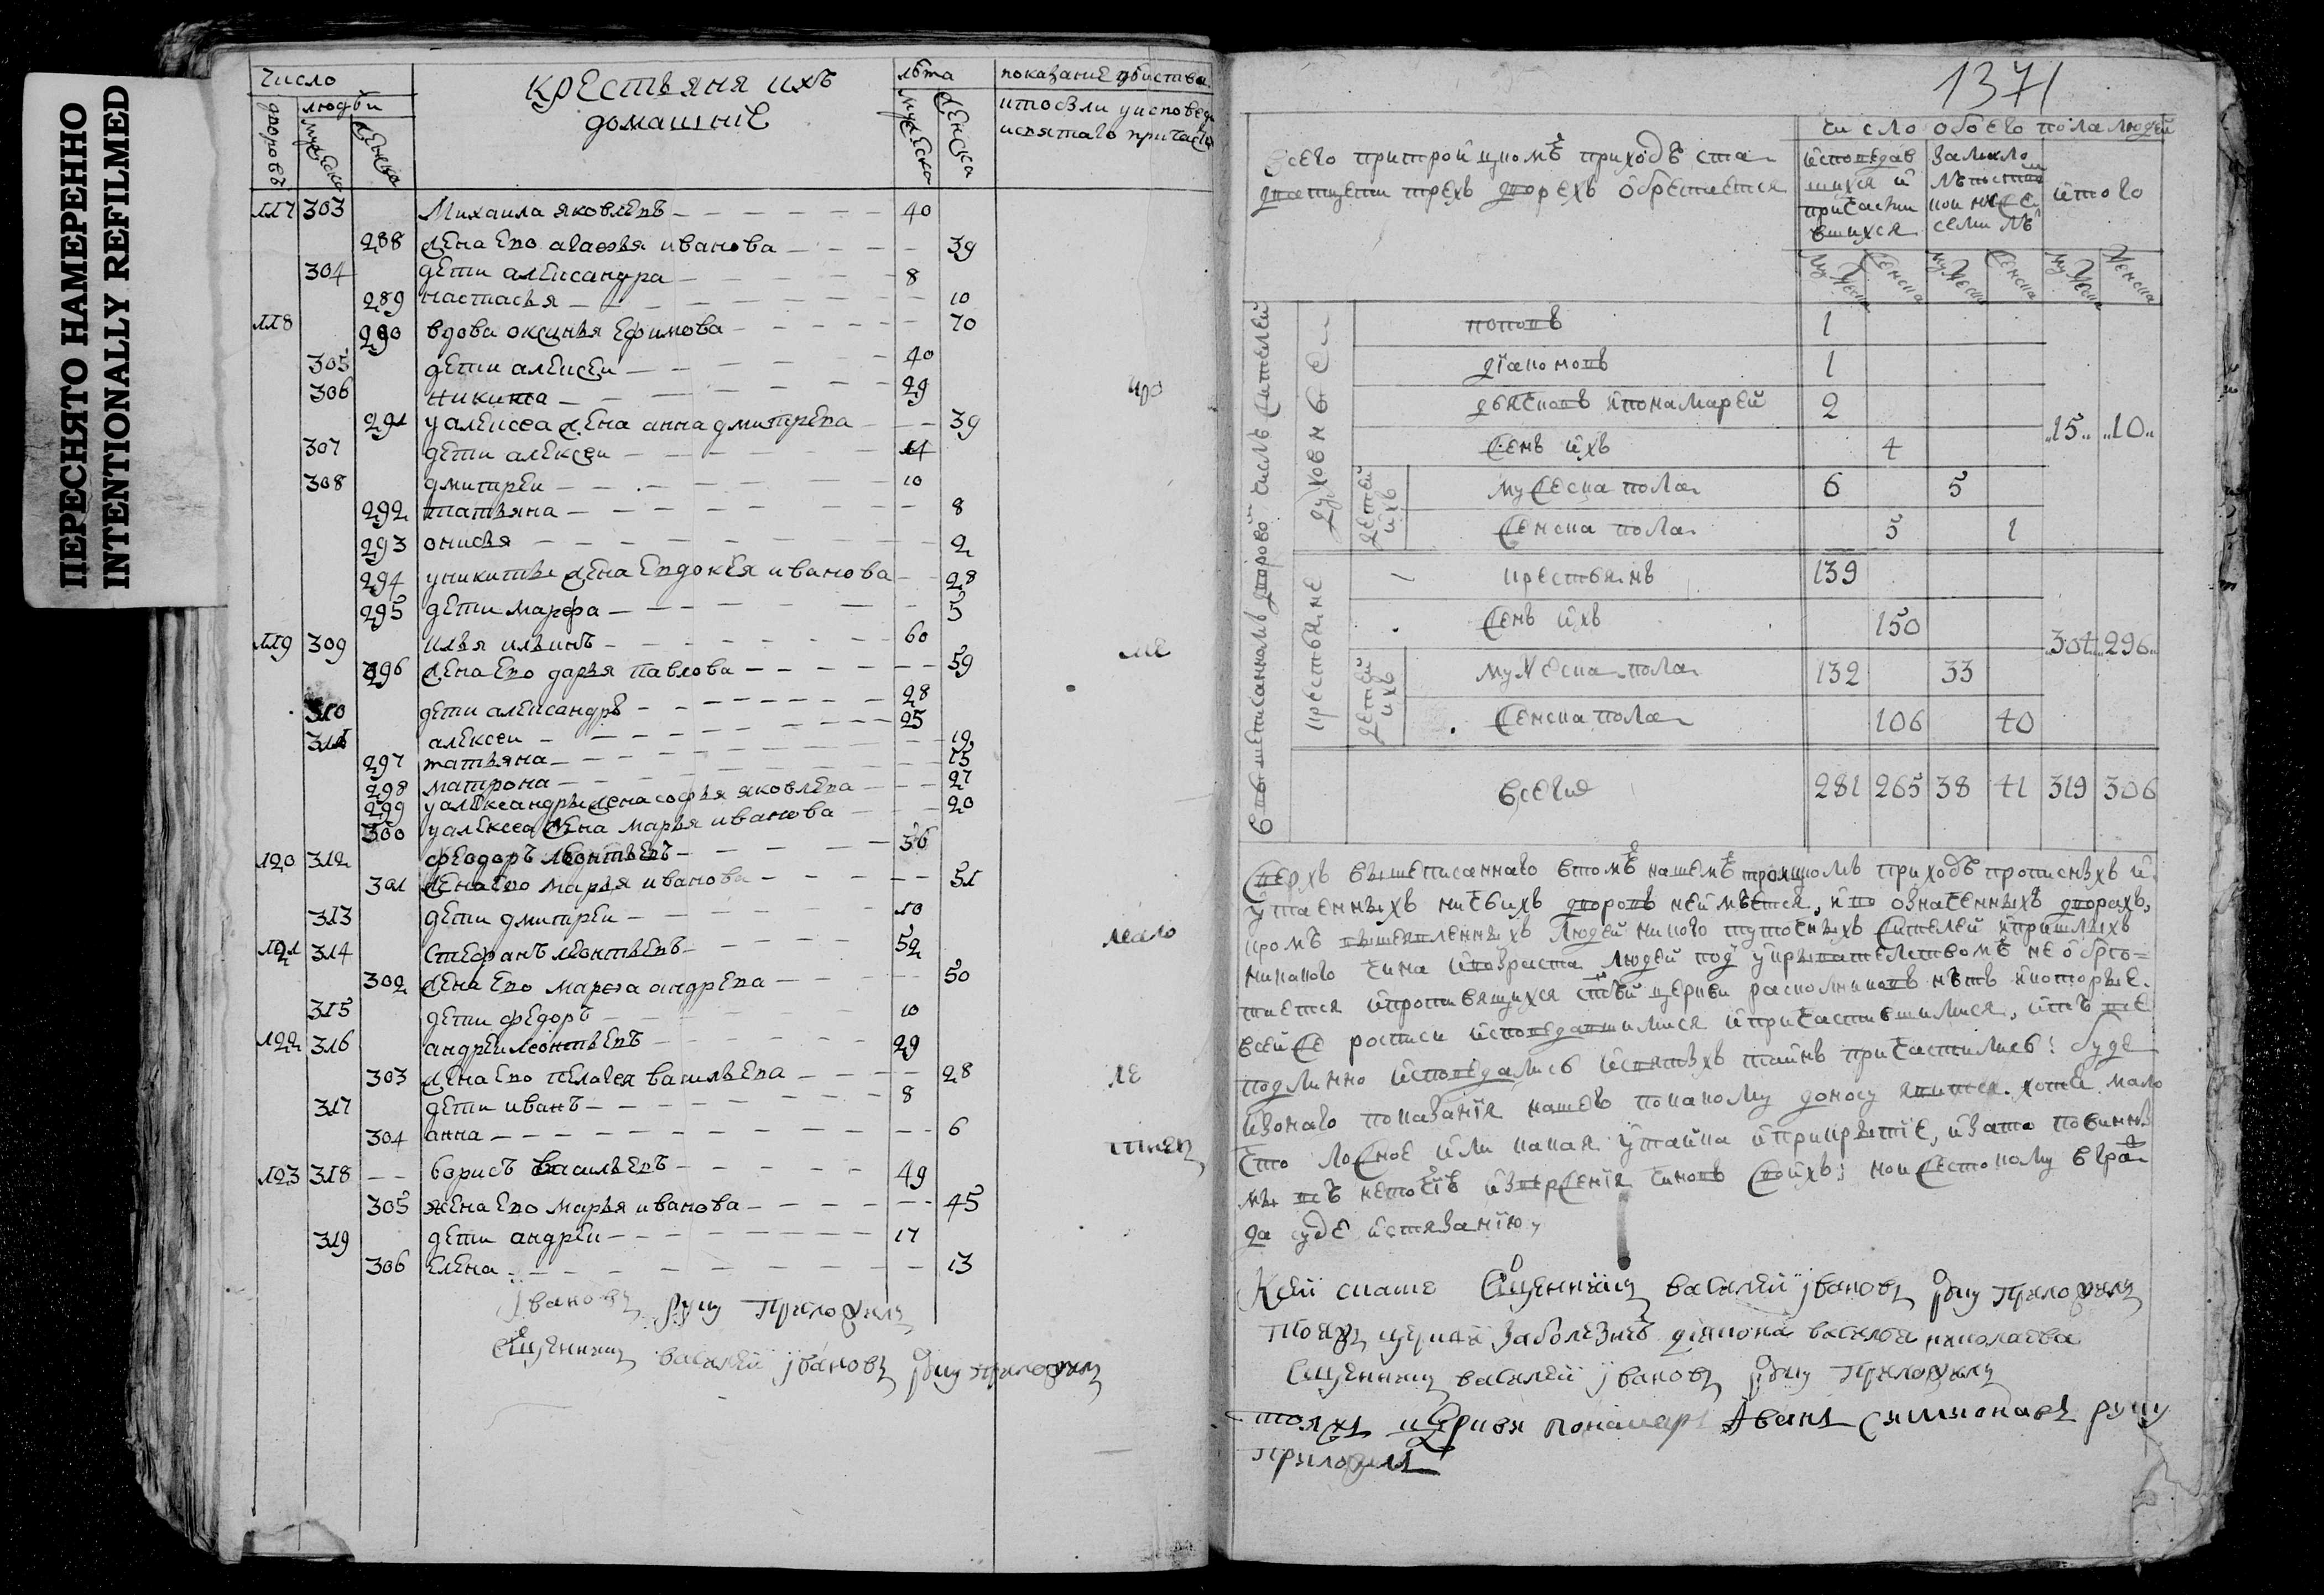 ПЕРЕСНЯТО НАМЕРЕННО
INTENTIONALLY REFILMED
число
людѣи
дворовъ
мужеска
женска
крестьяня ихъ
домашние
лѣта
мужеска
женска
показание действа
117 303 Михаила яковлевъ 40
288 жена ево агафья иванова 39
304 дети александра 8
289 настасья 10
118 290 вдова оксинья ефимова 70
305 дети алексеи 40
306 никита 29
291 у алексеа жена анна дмитрева 39
307 дети алексеи 14
308 дмитреи 10
292 татьяна 8
293 онисья 2
294 у никиты жена евдокея иванова 28
295 дети марфа 5
119 309 илья ильинъ 60
296 жена ево дарья павлова 59
310 дети александръ 28
311 алексеи 25
297 татьяна 19
298 матрона 15
299 у александры жена софья яковлева 27
300 у алексеа жена марья иванова 20
120 312 феодоръ леонтьевъ 56
301 жена ево марья иванова 51
313 дети дмитреи 10
121 314 стефанъ леонтьевъ 52
302 жена ево марфа андрева 50
315 дети федоръ 10
122 316 андреи леонтьевъ 29
303 жена ево пелагея васильева 28
317 дети иванъ 8
304 анна 6
123 318 борисъ васильевъ 49
305 жена ево марья иванова 45
319 дети андреи 17
306 елена 13
Ивановъ руку приложилъ
Сщенникъ василей ївановъ руку приложилъ
1371
число обоего пола людей
всего при троицкомъ приходѣ ста
дватцети трехъ дворехъ обретается
исповедав
шихся и
причасти
вшихся
за мало
лѣтством
итого
мужеска женска мужеска женска мужеска женска
в вышеписанномъ дворовой числѣ жителей
духовны
поповъ 1
діаконовъ 1
дьячковъ и понамарей 2
женъ ихъ 4
15 10
детей ихъ
мужеска пола 6 5
женска пола 5 1
крестьяне
крестьянъ 139
женъ ихъ 150
304 296
детей ихъ
мужеска пола 132 33
женска пола 106 40
всего 281 265 38 41 319 306
сверхъ вышеписанного в томъ нашемъ троицкомъ приходѣ прописныхъ и
утаенныхъ ничьихъ дворовъ неимѣется, и во означенныхъ дворахъ,
кромѣ вышеявленныхъ людей никого тутошныхъ жителей и пришлыхъ
никакого чина и возраста людей под укрывателством не обрѣ=
тается и противящихся стѣй церкви расколниковъ нѣтъ и которые
в сей же росписи исповедавшимися и причастившимися, и тѣ все
подлинно исповедались и святыхъ таинъ причастились: буде
из онаго показанія нашегѡ по какому доносу явится хотя мало
что ложное или какая утайка и прикрытіе, и за то повинны
мы не точію извержения чиновъ своихъ; но и жестокому в гра
да суде истязанию,
К сей сказке Сщенникъ василей ївановъ руку приложилъ
тояжъ церкви за болезнь діякона василья николаева
Сщенникъ василей ївановъ руку приложилъ
тояжъ церкви понамарь Иванъ симионавъ руку
приложилъ